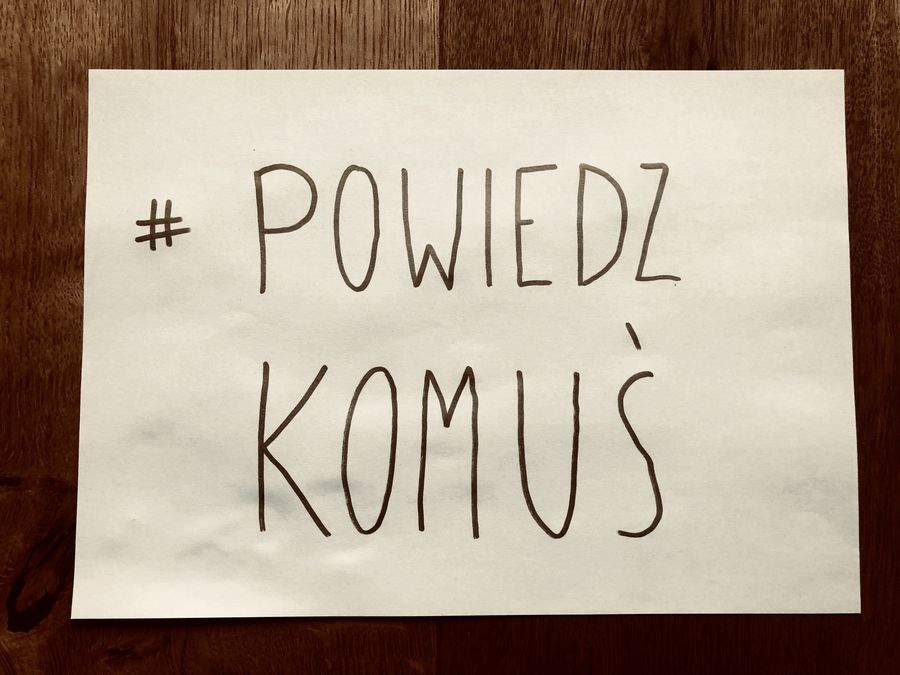 # POWIEDZ
KOMUŚ